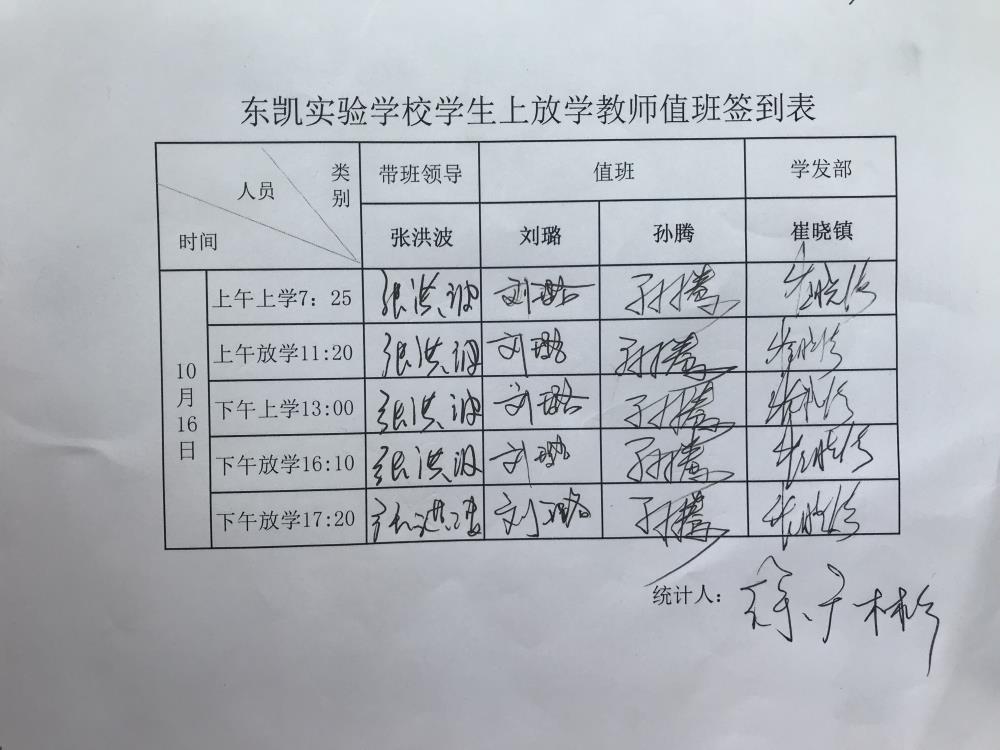 东凯实验学校学生上放学教师值班签到表
类别 人员 时间 带班领导 值班 学发部
张洪波 刘璐 孙腾 崔晓镇
10月16日
上午上学7：25 张洪波 刘璐 孙腾 崔晓镇
上午放学11:20 张洪波 刘璐 孙腾 崔晓镇
下午上学13:00 张洪波 刘璐 孙腾 崔晓镇
下午放学16:10 张洪波 刘璐 孙腾 崔晓镇
下午放学17:20 刘璐 孙腾 崔晓镇
统计人：